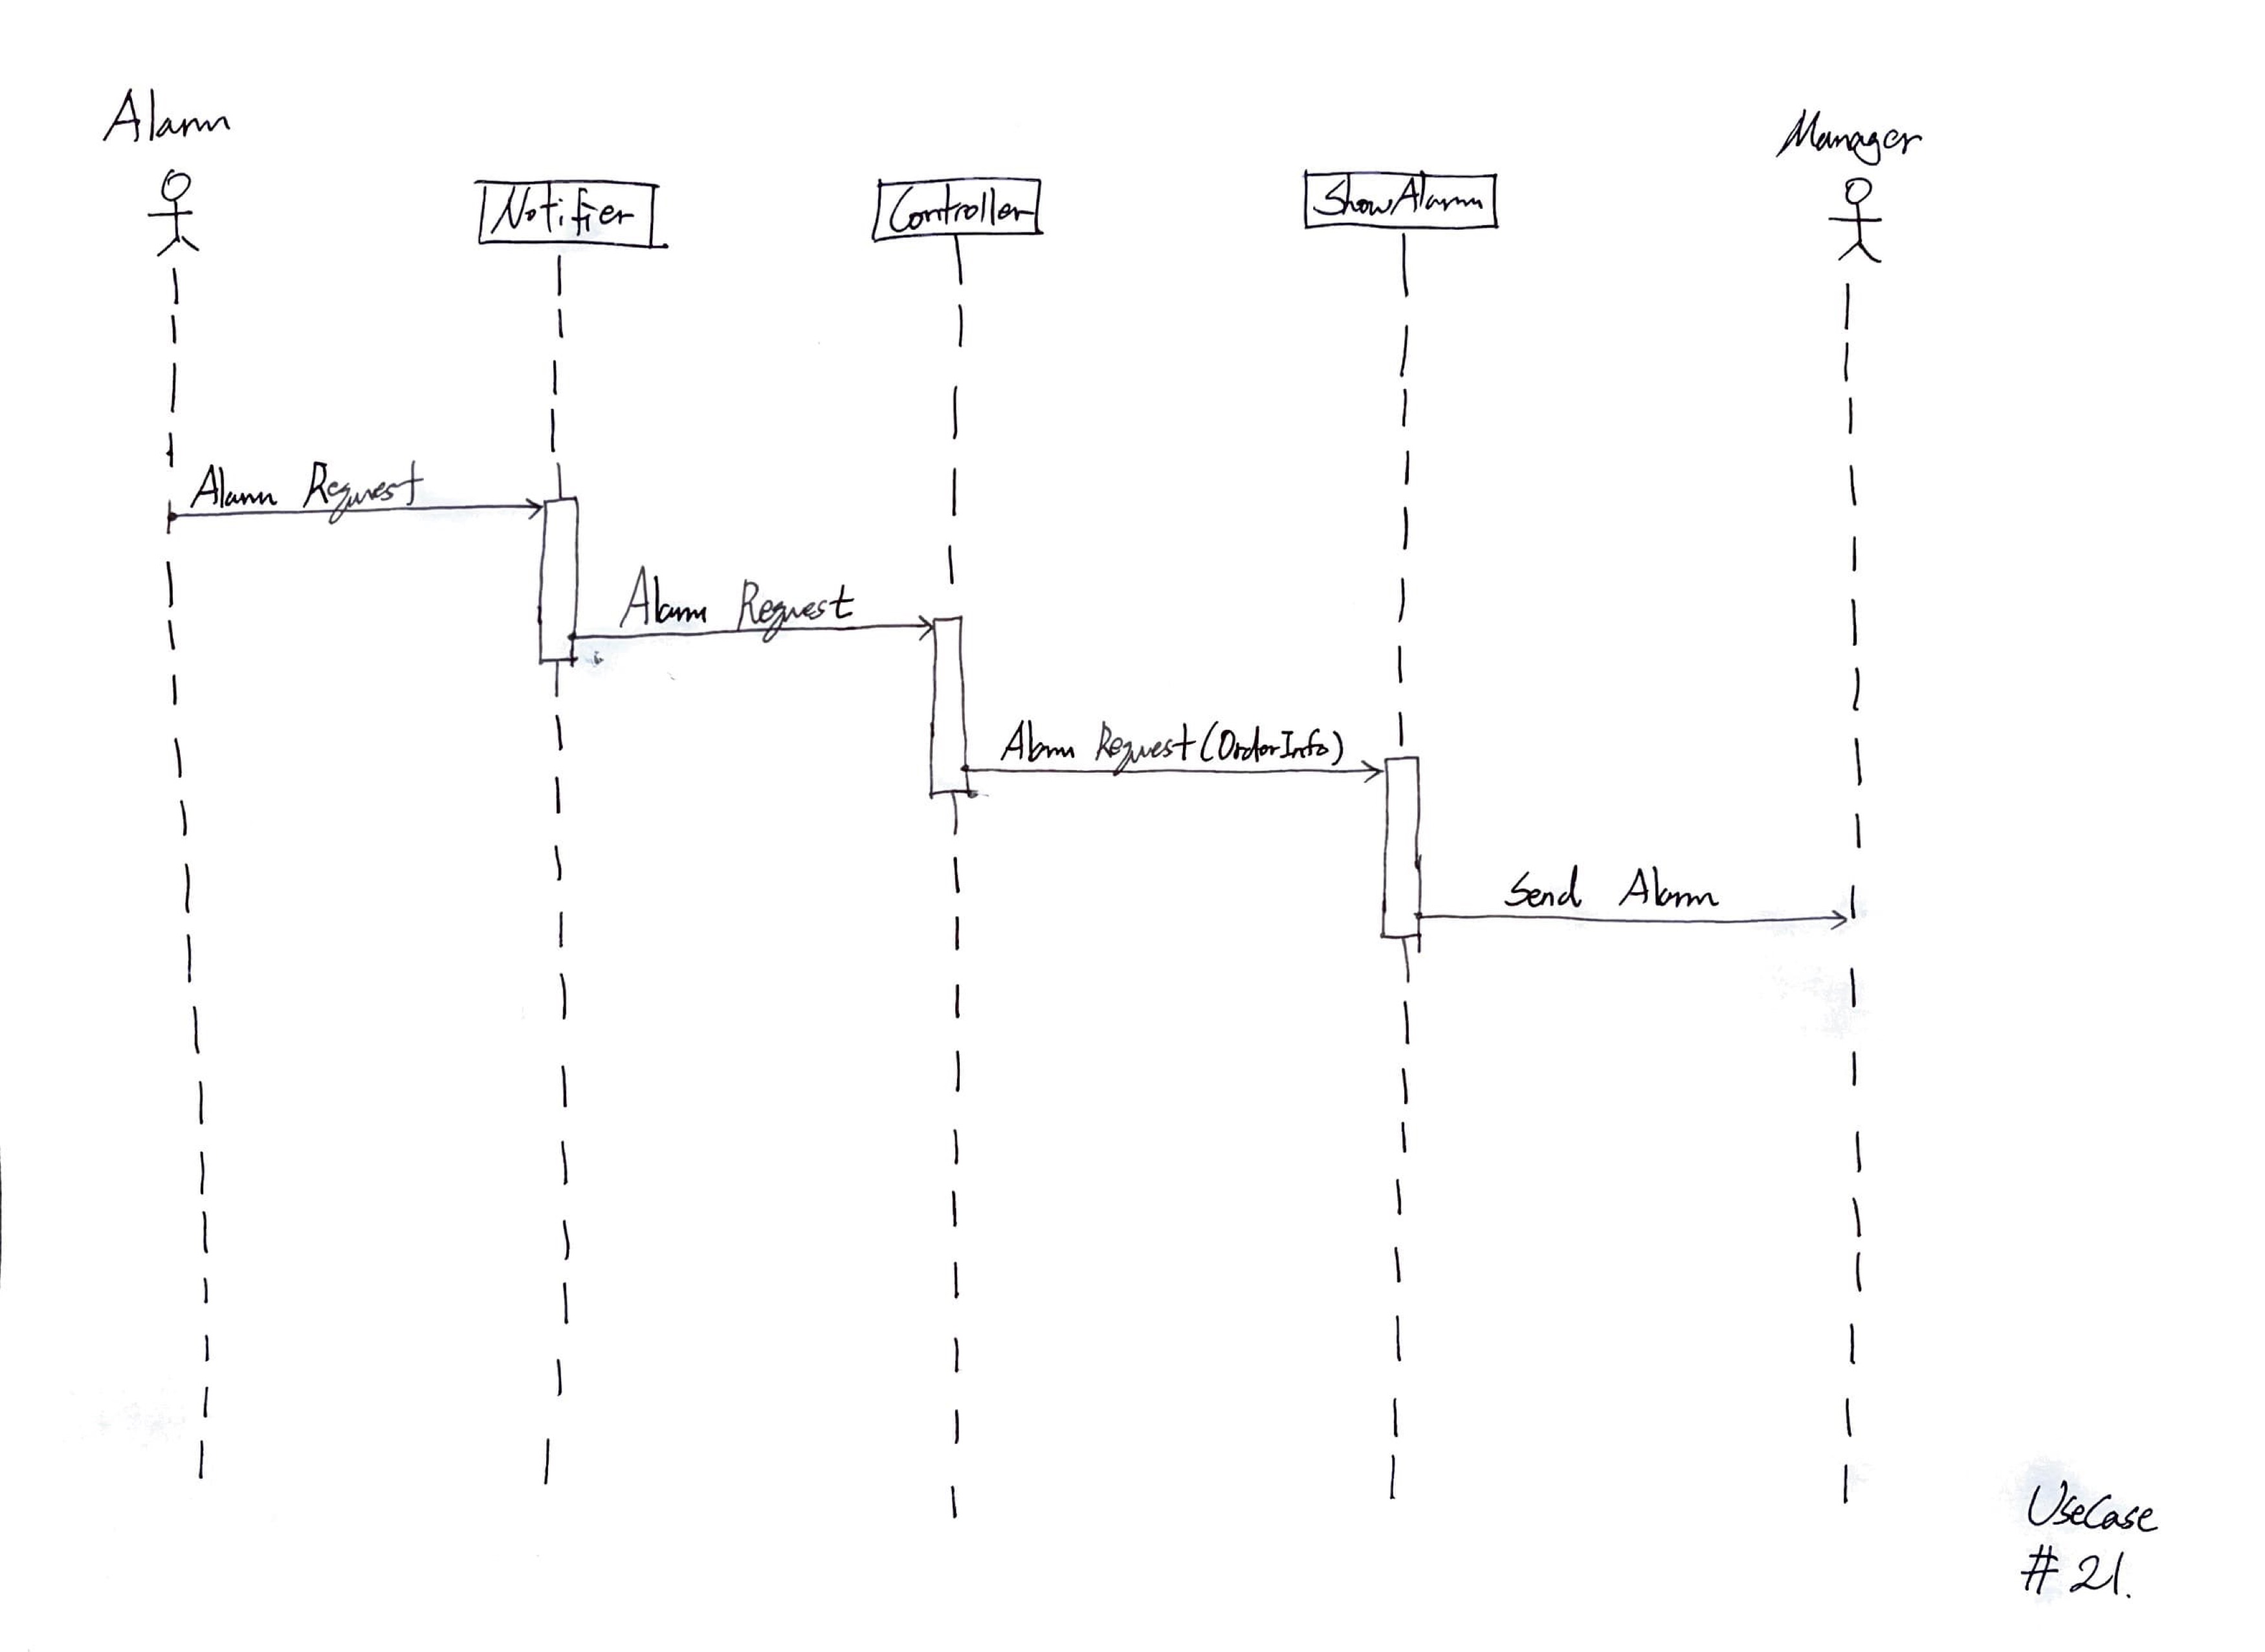 Alarm
Manager
Notifier
Controller
ShowAlarm
Alarm Request
Alarm Request
Alarm Request (OrderInfo)
Send Alarm
UseCase
# 21.